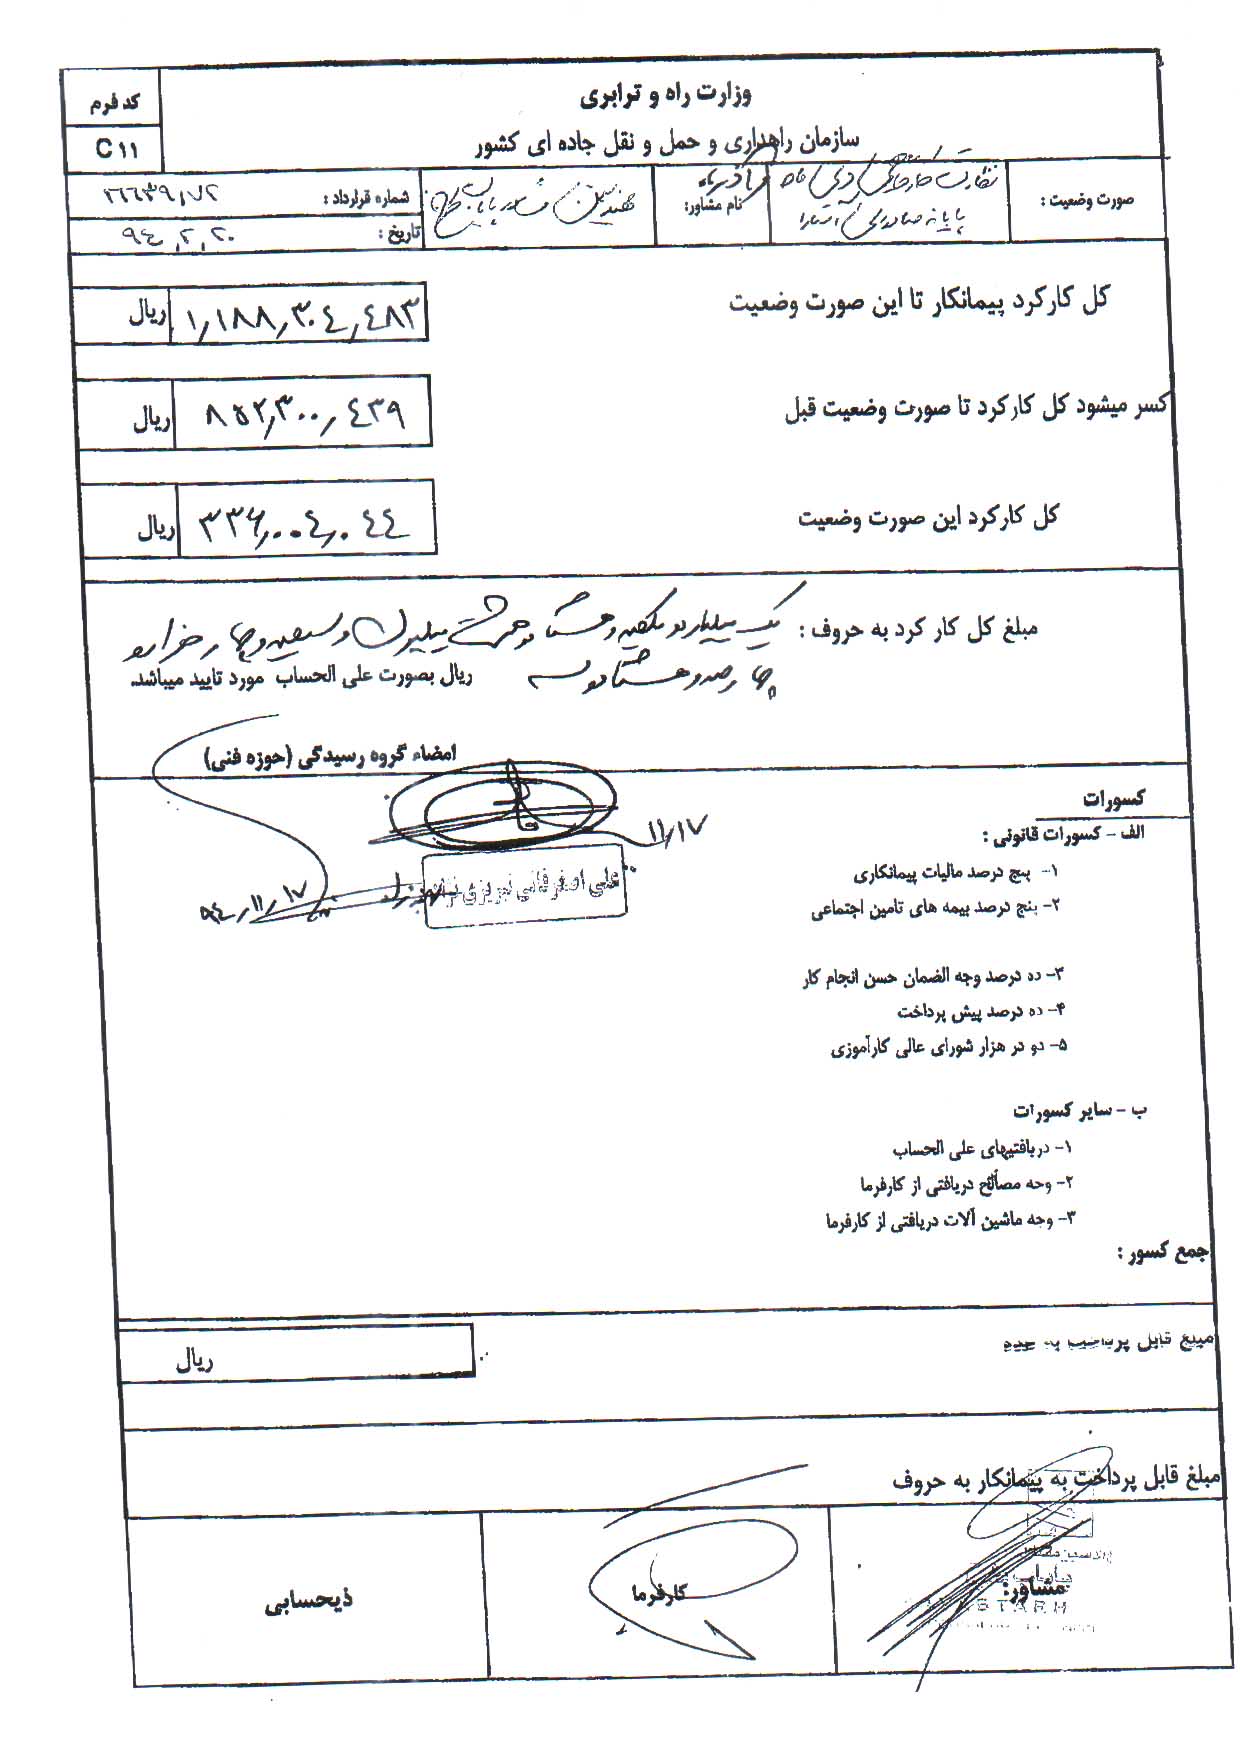 وزارت راه و ترابری
سازمان راهداری و حمل و نقل جاده ای کشور
کد فرم
C ۱۱
صورت وضعیت :
نظارت
آذر ماه
نام مشاور:
مهندسین مشاور
شماره قرارداد : ۲۶۶۳۹٫۷۲
تاریخ : ۹۴٫۲٫۲۰
کل کارکرد پیمانکار تا این صورت وضعیت ۱٫۱۸۸٫۳۰۴٫۴۸۳ ریال
کسر میشود کل کارکرد تا صورت وضعیت قبل ۸۵۲٫۳۰۰٫۴۳۹ ریال
کل کارکرد این صورت وضعیت ۳۳۶٫۰۰۴٫۰۴۴ ریال
مبلغ کل کار کرد به حروف : یک میلیارد و یکصد و هشتاد و هشت میلیون و سیصد و چهار هزار و
چهارصد و هشتاد و سه ریال بصورت علی الحساب مورد تایید میباشد.
امضاء گروه رسیدگی (حوزه فنی)
۱۱٫۱۷
علی اصغر
۹۴٫۱۱٫۱۷
کسورات
الف - کسورات قانونی :
۱- پنج درصد مالیات پیمانکاری
۲- پنج درصد بیمه های تامین اجتماعی
۳- ده درصد وجه الضمان حسن انجام کار
۴- ده درصد پیش پرداخت
۵- دو در هزار شورای عالی کارآموزی
ب - سایر کسورات
۱- دریافتیهای علی الحساب
۲- وجه مصالح دریافتی از کارفرما
۳- وجه ماشین آلات دریافتی از کارفرما
جمع کسور :
مبلغ قابل پرداخت به عدد
ریال
مبلغ قابل پرداخت به پیمانکار به حروف
مشاور:
کارفرما
ذیحسابی